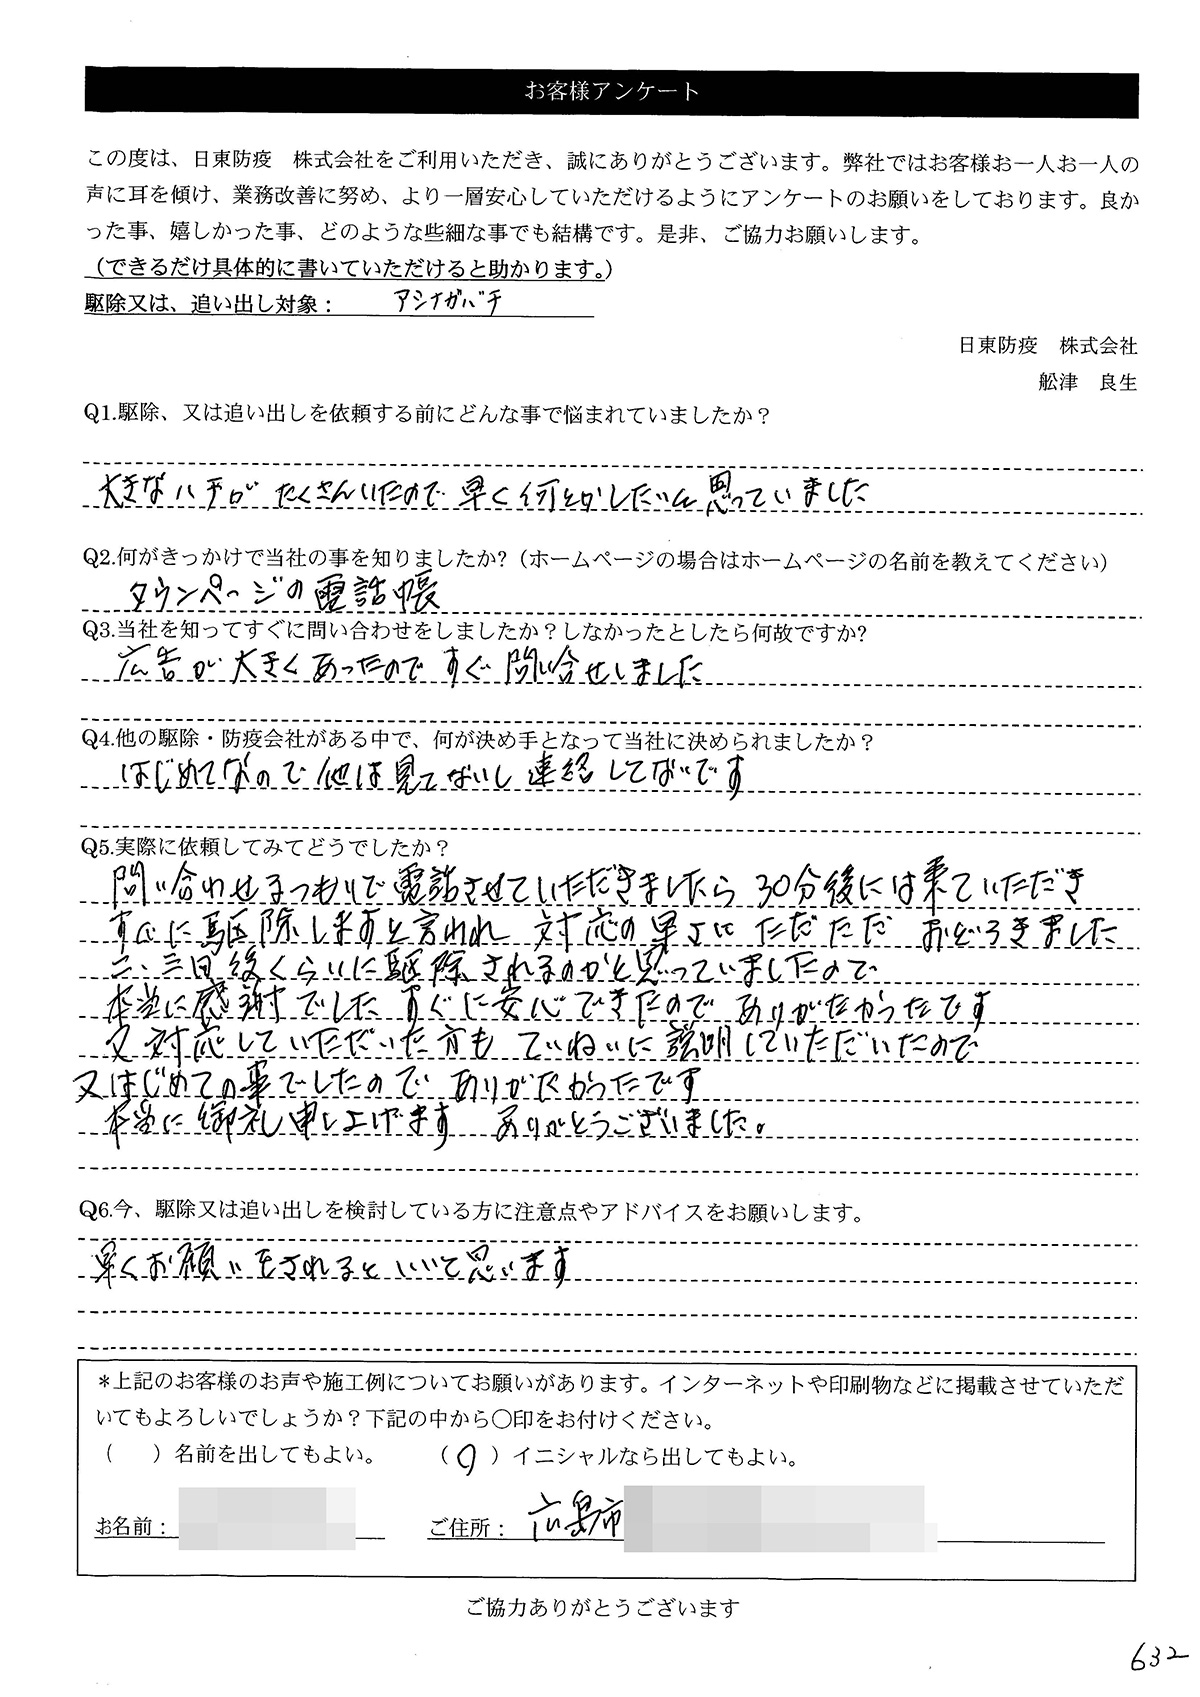 お客様アンケート
この度は、日東防疫　株式会社をご利用いただき、誠にありがとうございます。弊社ではお客様お一人お一人の
声に耳を傾け、業務改善に努め、より一層安心していただけるようにアンケートのお願いをしております。良か
った事、嬉しかった事、どのような些細な事でも結構です。是非、ご協力お願いします。
（できるだけ具体的に書いていただけると助かります。）
駆除又は、追い出し対象： アシナガバチ
日東防疫　株式会社
舩津　良生
Q1.駆除、又は追い出しを依頼する前にどんな事で悩まれていましたか？
大きなハチが たくさんいたので 早く何とかしたいと思っていました
Q2.何がきっかけで当社の事を知りましたか?（ホームページの場合はホームページの名前を教えてください）
タウンページの電話帳
Q3.当社を知ってすぐに問い合わせをしましたか？しなかったとしたら何故ですか?
広告が大きくあったので すぐ問い合せしました
Q4.他の駆除・防疫会社がある中で、何が決め手となって当社に決められましたか？
はじめてなので他は見てないし連絡してないです
Q5.実際に依頼してみてどうでしたか？
問い合わせるつもりで電話させていただきましたら 30分後には来ていただき
すぐに駆除しますと言われ 対応の早さに ただただ おどろきました
二、三日後くらいに駆除されるのかと思っていましたので
本当に感謝でした すぐに安心できたので ありがたかったです
又 対応していただいた方も ていねいに説明していただいたので
又はじめての事でしたので ありがたかったです
本当に御礼申し上げます ありがとうございました。
Q6.今、駆除又は追い出しを検討している方に注意点やアドバイスをお願いします。
早くお願いをされるといいと思います
*上記のお客様のお声や施工例についてお願いがあります。インターネットや印刷物などに掲載させていただ
いてもよろしいでしょうか？下記の中から〇印をお付けください。
（　）名前を出してもよい。 （〇）イニシャルなら出してもよい。
お名前： ご住所： 広島市
ご協力ありがとうございます
632